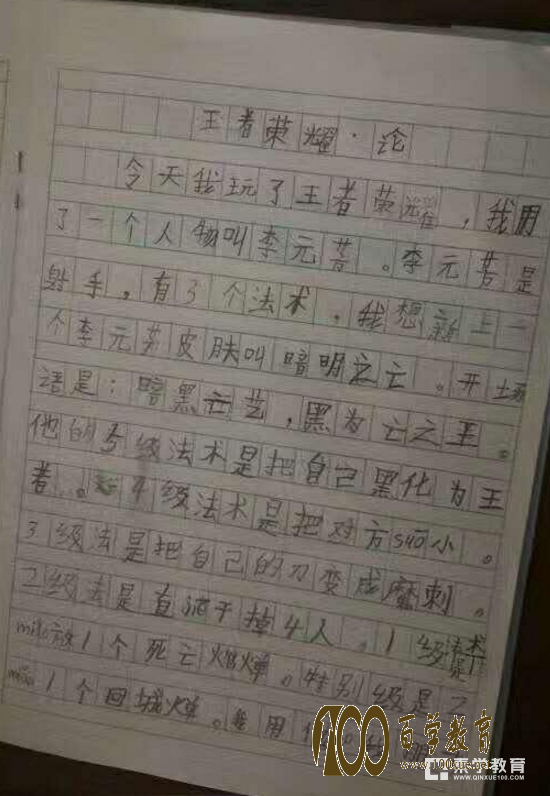 王者荣耀·论
今天我玩了王者荣耀，我用
了一个人物叫李元芳。李元芳是
射手，有3个法术，我想新上一
个李元芳皮肤叫暗明之亡。开场
语是：暗黑亡艺，黑为亡之王。
他的5级法术是把自己黑化为王
者。4级法术是把对方suō小。
3级法是把自己的刀变成魔刺。
2级法是直接干掉4人。1级
放1个死亡火暴弹。特别级是2
1个回城弹。用
100百学教育
www.100xue.net
亲学教育
www.QINXUE100.COM